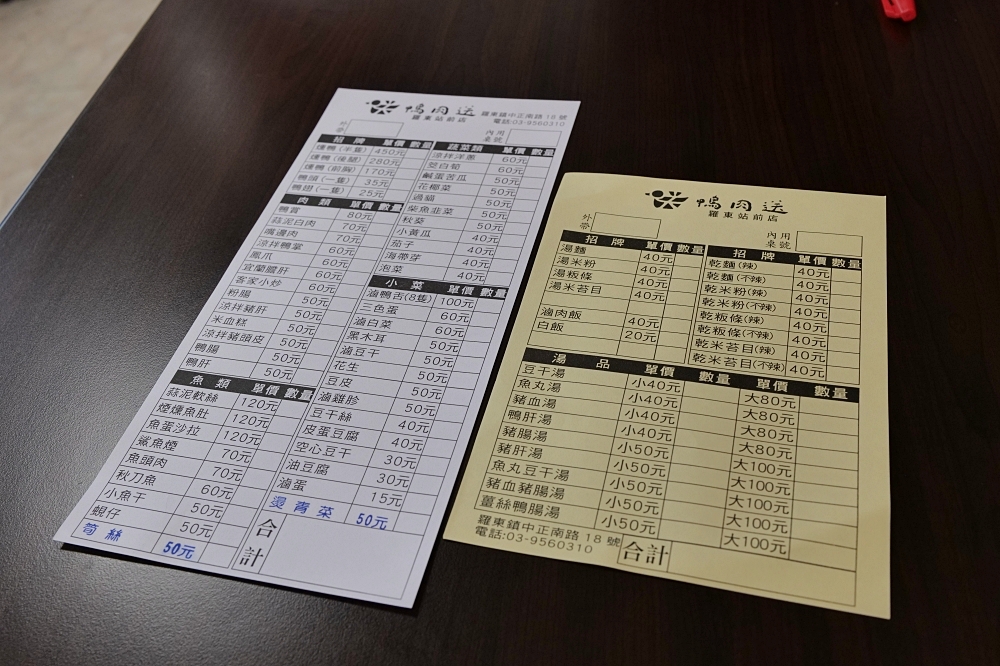 鴨肉送 羅東站前店
羅東鎮中正南路18號
電話:03-9560310
外帶
內用桌號
招牌 單價 數量
燻鴨(半隻) 450元
燻鴨(後腿) 280元
燻鴨(前胸) 170元
鴨頭(一隻) 35元
鴨翅(一隻) 25元
肉類 單價 數量
鴨賞 80元
蒜泥白肉 70元
嘴邊肉 70元
涼拌鴨掌 60元
鳳爪 60元
宜蘭膽肝 60元
客家小炒 60元
粉腸 50元
涼拌豬肝 50元
米血糕 50元
涼拌豬頭皮 50元
鴨腸 50元
鴨肝 50元
魚類 單價 數量
蒜泥軟絲 120元
煙燻魚肚 120元
魚蛋沙拉 120元
鯊魚煙 70元
魚頭肉 70元
秋刀魚 60元
小魚干 50元
鯷仔 50元
筍絲 50元
蔬菜類 單價 數量
涼拌洋蔥 60元
茭白筍 60元
鹹蛋苦瓜 50元
花椰菜 50元
過貓 50元
柴魚韭菜 50元
秋葵 50元
小黃瓜 40元
茄子 40元
海帶芽 40元
泡菜 40元
小菜 單價 數量
滷鴨舌(8隻) 100元
三色蛋 60元
滷白菜 60元
黑木耳 50元
滷豆干 50元
花生 50元
豆皮 50元
滷雞胗 50元
豆干絲 40元
皮蛋豆腐 40元
空心豆干 30元
油豆腐 30元
滷蛋 15元
燙青菜 50元
合計
鴨肉送
羅東站前店
外帶
內用桌號
招牌 單價 數量
湯麵 40元
湯米粉 40元
湯粄條 40元
湯米苔目 40元
滷肉飯 40元
白飯 20元
招牌 單價 數量
乾麵(辣) 40元
乾麵(不辣) 40元
乾米粉(辣) 40元
乾米粉(不辣) 40元
乾粄條(辣) 40元
乾粄條(不辣) 40元
乾米苔目(辣) 40元
乾米苔目(不辣) 40元
湯品 單價 數量 單價 數量
豆干湯 小40元 大80元
魚丸湯 小40元 大80元
豬血湯 小40元 大80元
鴨肝湯 小40元 大80元
豬腸湯 小50元 大100元
豬肝湯 小50元 大100元
魚丸豆干湯 小50元 大100元
豬血豬腸湯 小50元 大100元
薑絲鴨腸湯 小50元 大100元
羅東鎮中正南路18號
電話:03-9560310
合計